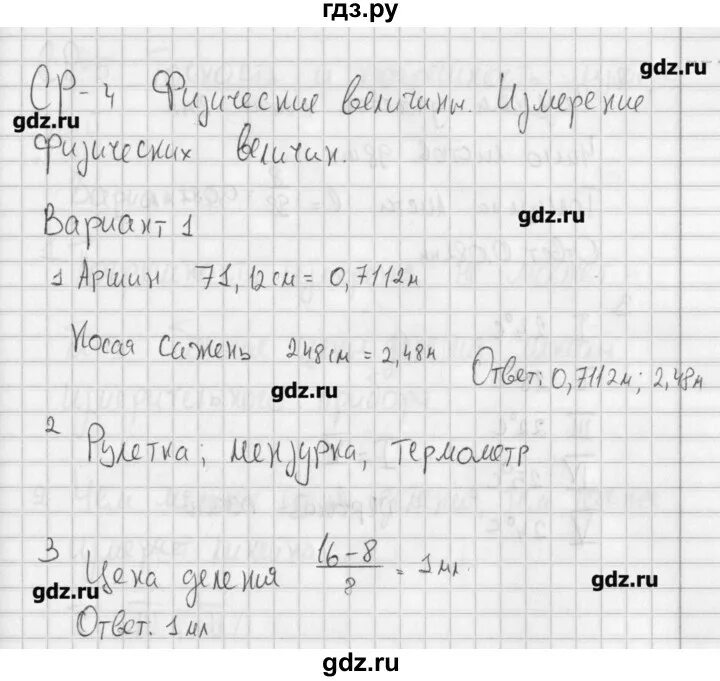 гдз.ру
СР-4 Физические величины. Измерение
gdz.ru
gdz.ru
физических величин.
gdz.ru
Вариант 1
1 Аршин 71,12см = 0,7112м
Косая сажень 248см = 2,48м
Ответ: 0,7112м; 2,48м
gdz.ru
2 Рулетка; мензурка, термометр
3 Цена деления (16-8)/8 = 1мл.
gdz.ru
gdz.ru
Ответ. 1мл
gdz.ru